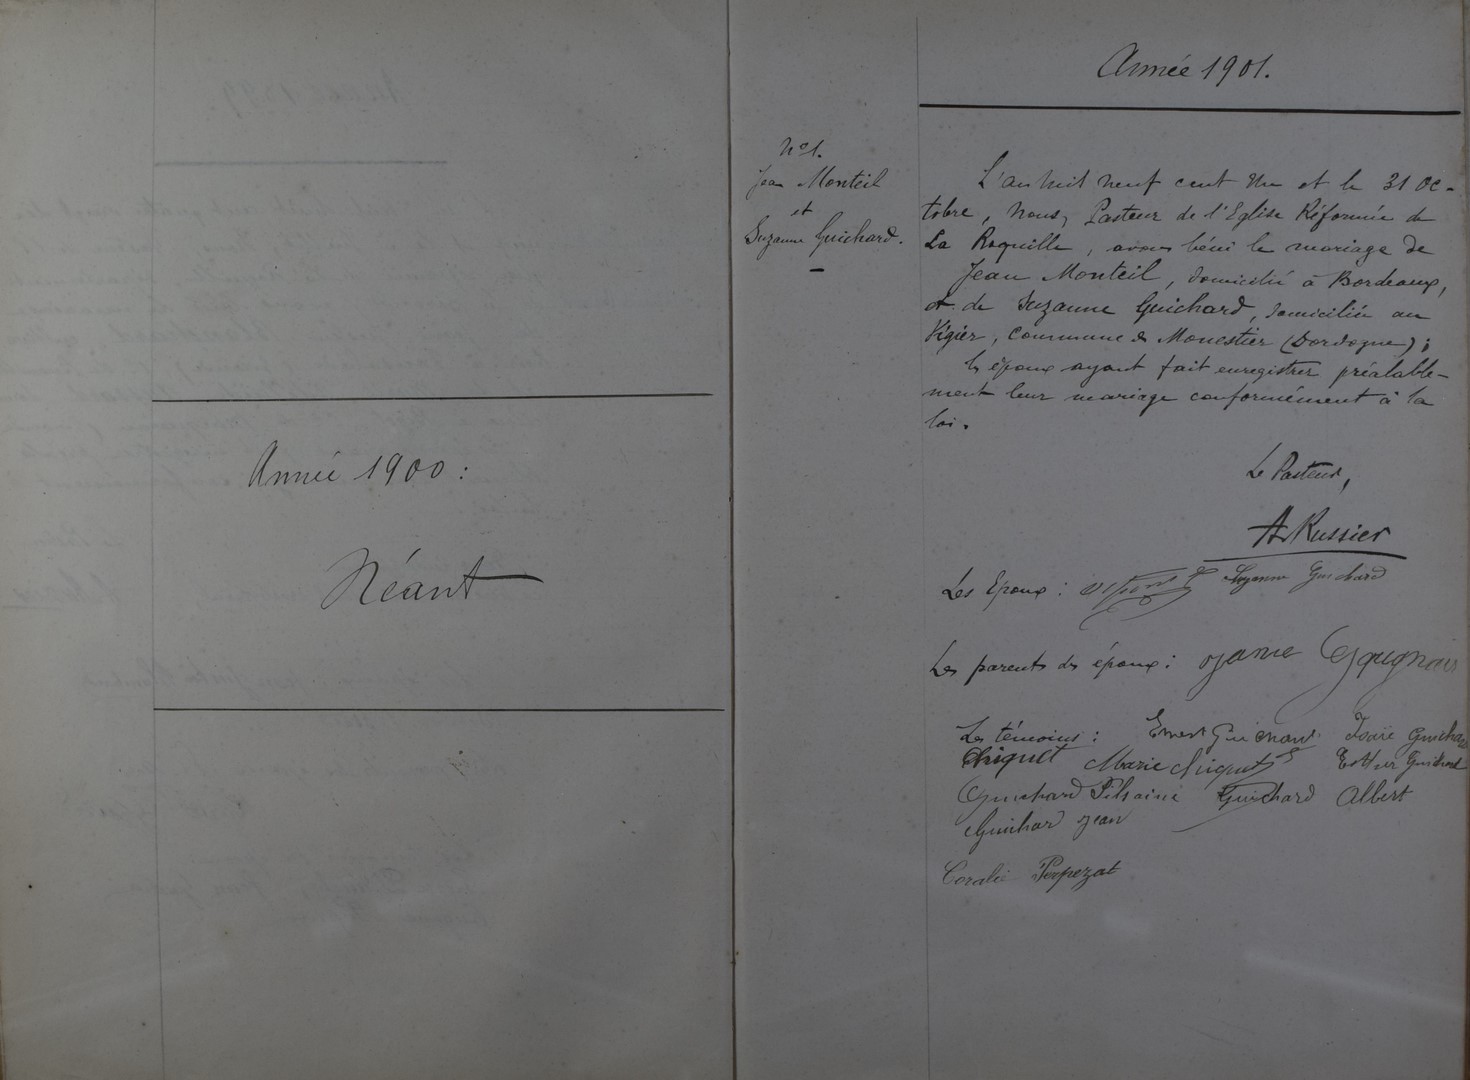 Année 1900 :
Néant
Année 1901.
N° 1.
Jean Monteil
et
Suzanne Guichard.
L'an mil neuf cent Un et le 31 Oc-
tobre, Nous, Pasteur de l'Eglise Réformée de
La Roquille, avons béni le mariage de
Jean Monteil, domicilié à Bordeaux,
et de Suzanne Guichard, domiciliée au
Vigier, commune de Monestier (Dordogne) ;
les époux ayant fait enregistrer préalable-
ment leur mariage conformément à la
loi.
Le Pasteur,
A Russier
Les Epoux : Suzanne Guichard
Les parents des époux :
Les témoins : Guichard
Chiquet Marie Chiquet Esther Guichard
Guichard Guichard Albert
Guichard Jean
Coralie Perpezat